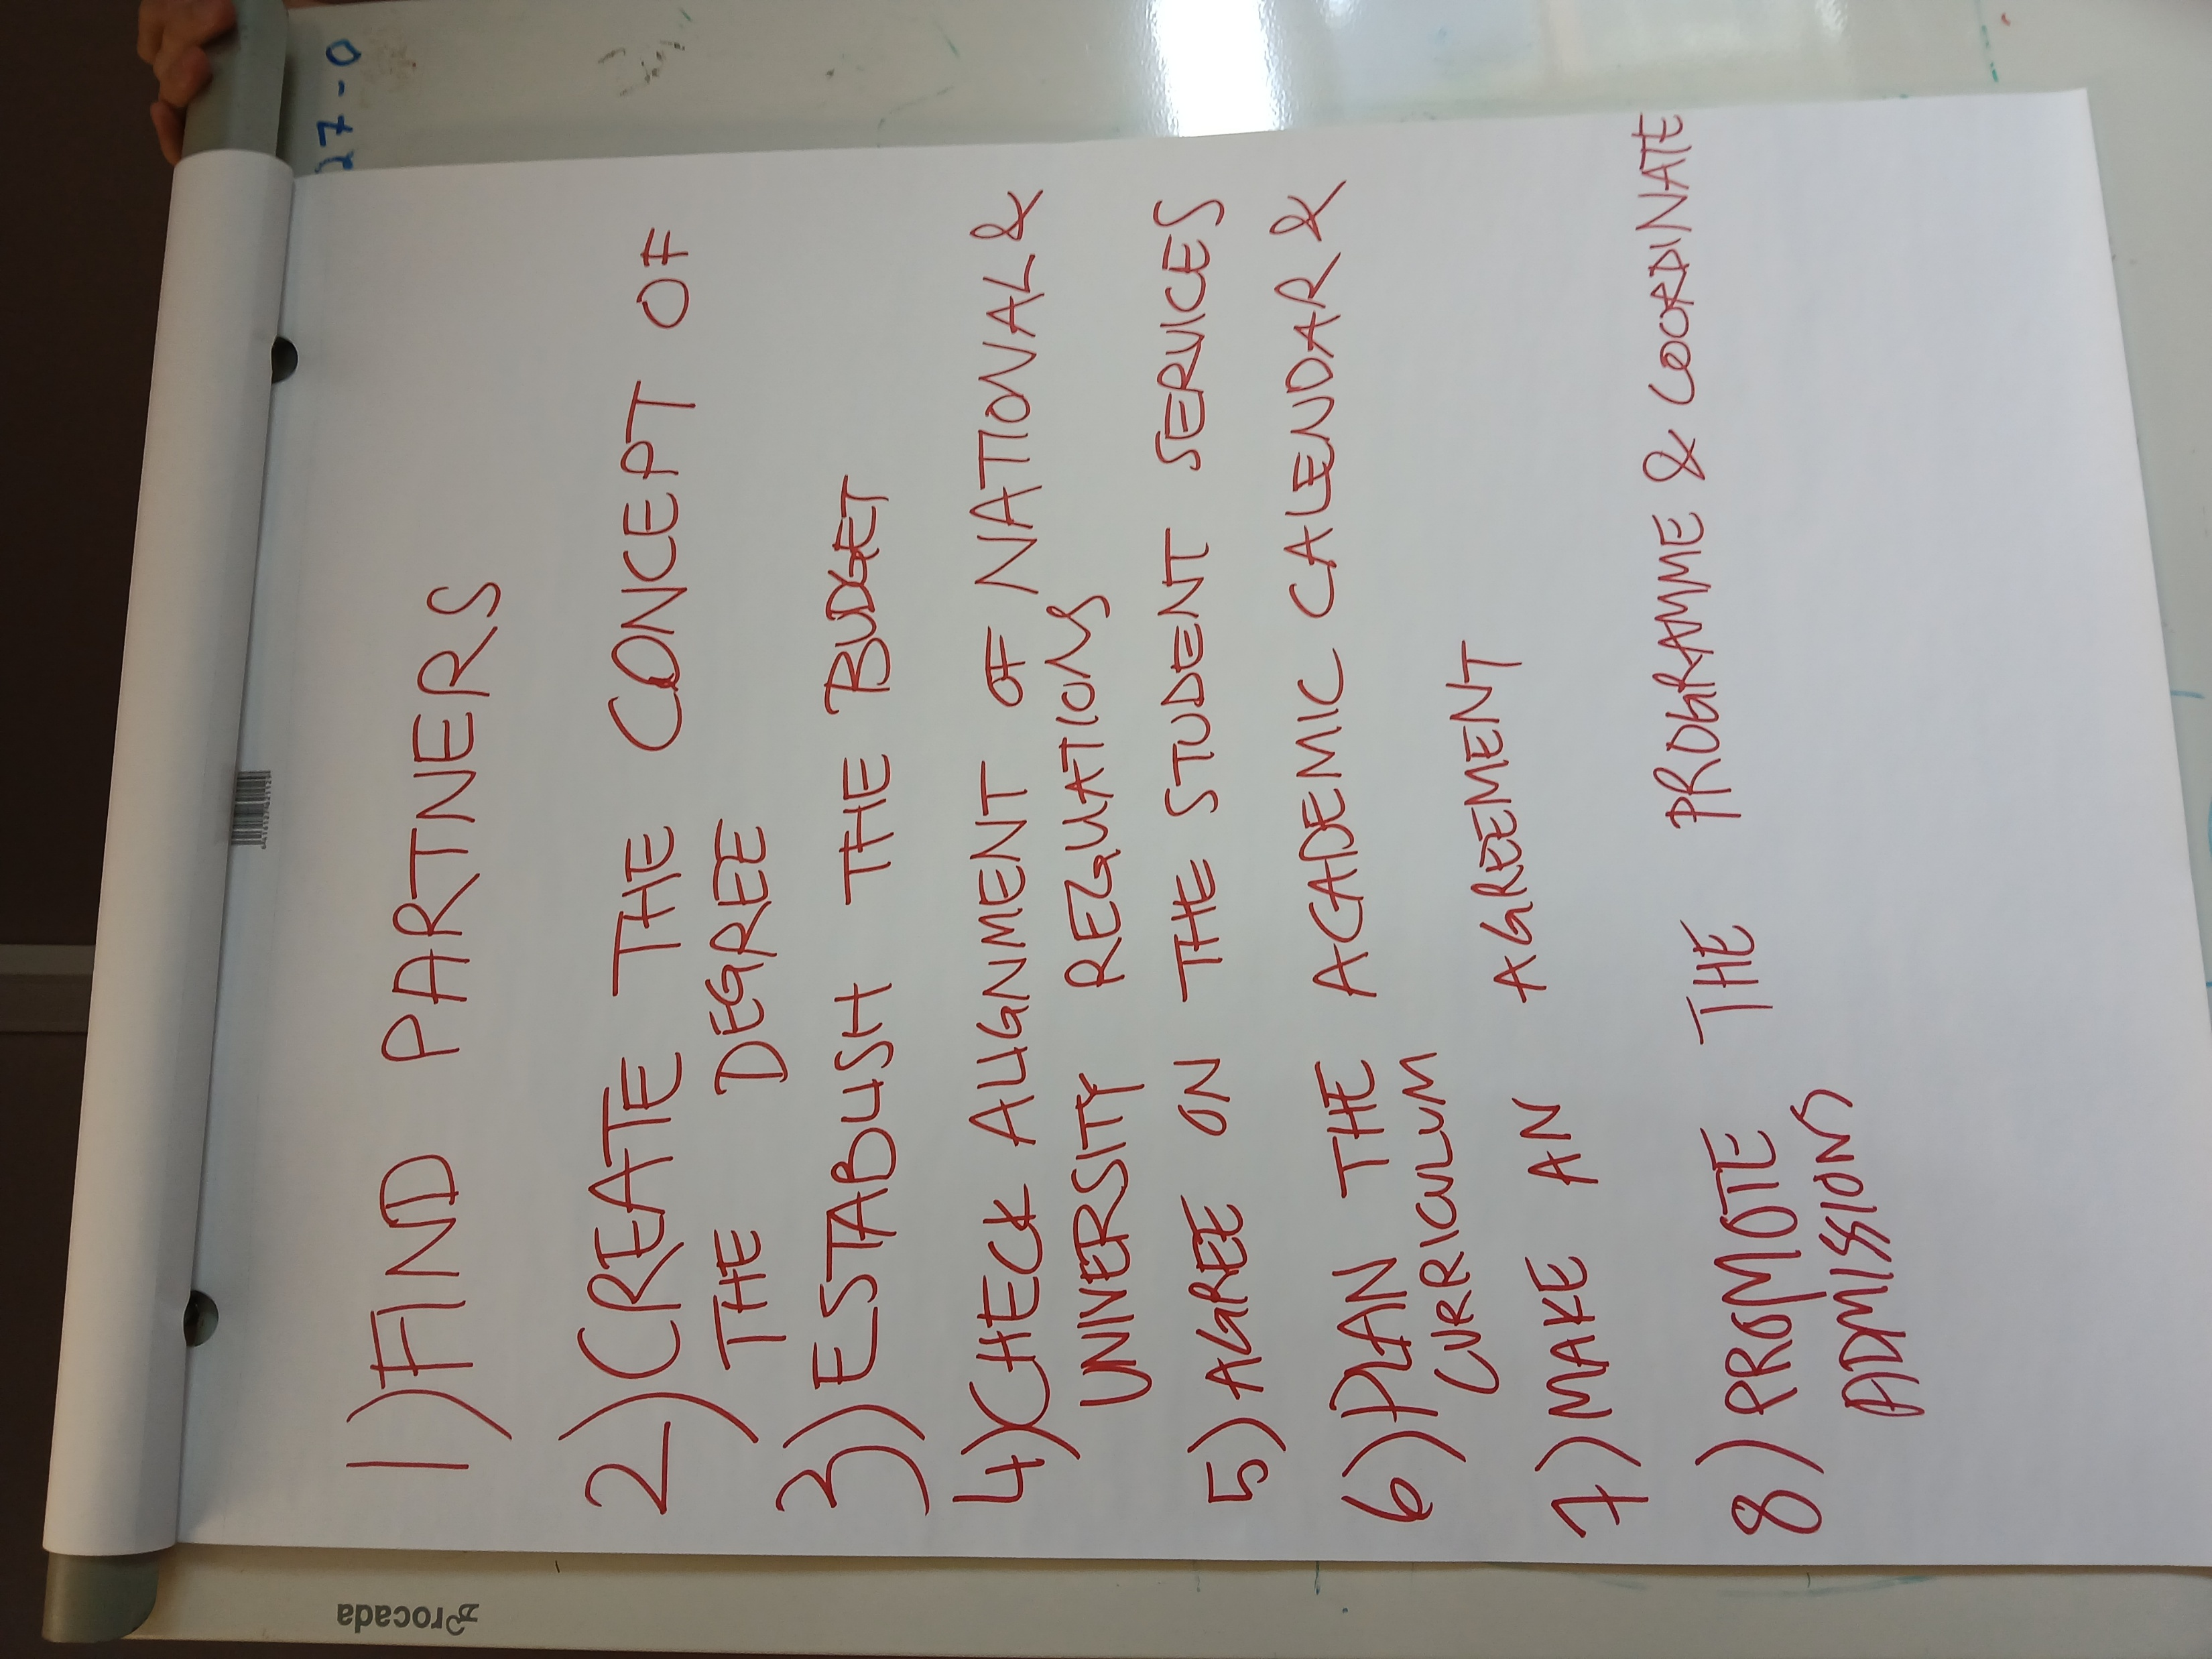 27-0
1) FIND PARTNERS
2) CREATE THE CONCEPT OF
THE DEGREE
3) ESTABLISH THE BUDGET
4) CHECK ALIGNMENT OF NATIONAL &
UNIVERSITY REGULATIONS
5) AGREE ON THE STUDENT SERVICES
6) PLAN THE ACADEMIC CALENDAR &
CURRICULUM
7) MAKE AN AGREEMENT
8) PROMOTE THE PROGRAMME & COORDINATE
ADMISSIONS
Rocada